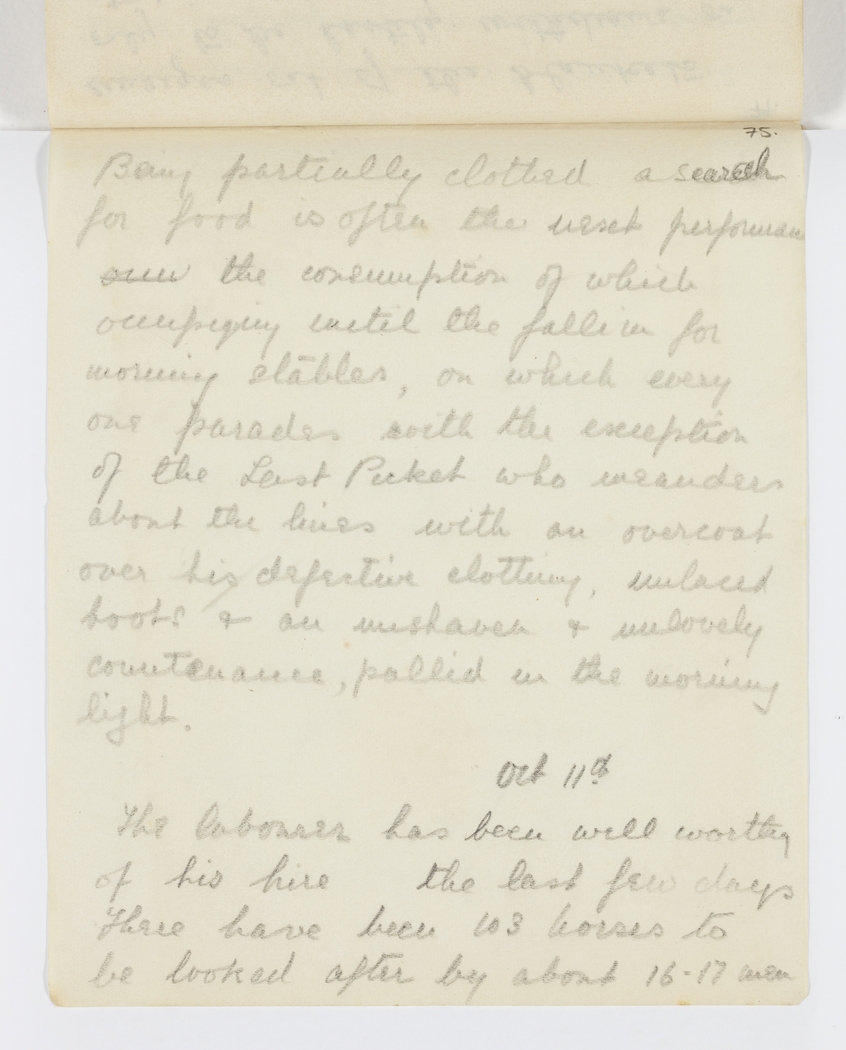 75.
Being partially clothed a search
for food is often the next performan
the consumption of which
occupying until the fall in for
morning stables, on which every
one parades with the exception
of the Last Picket who meanders
about the lines with an overcoat
over his defective clothing, unlaced
boots & an unshaven & unlovely
countenance, pallid in the morning
light.
Oct 11th
The labourer has been well worthy
of his hire the last few days
There have been 103 horses to
be looked after by about 16-17 men